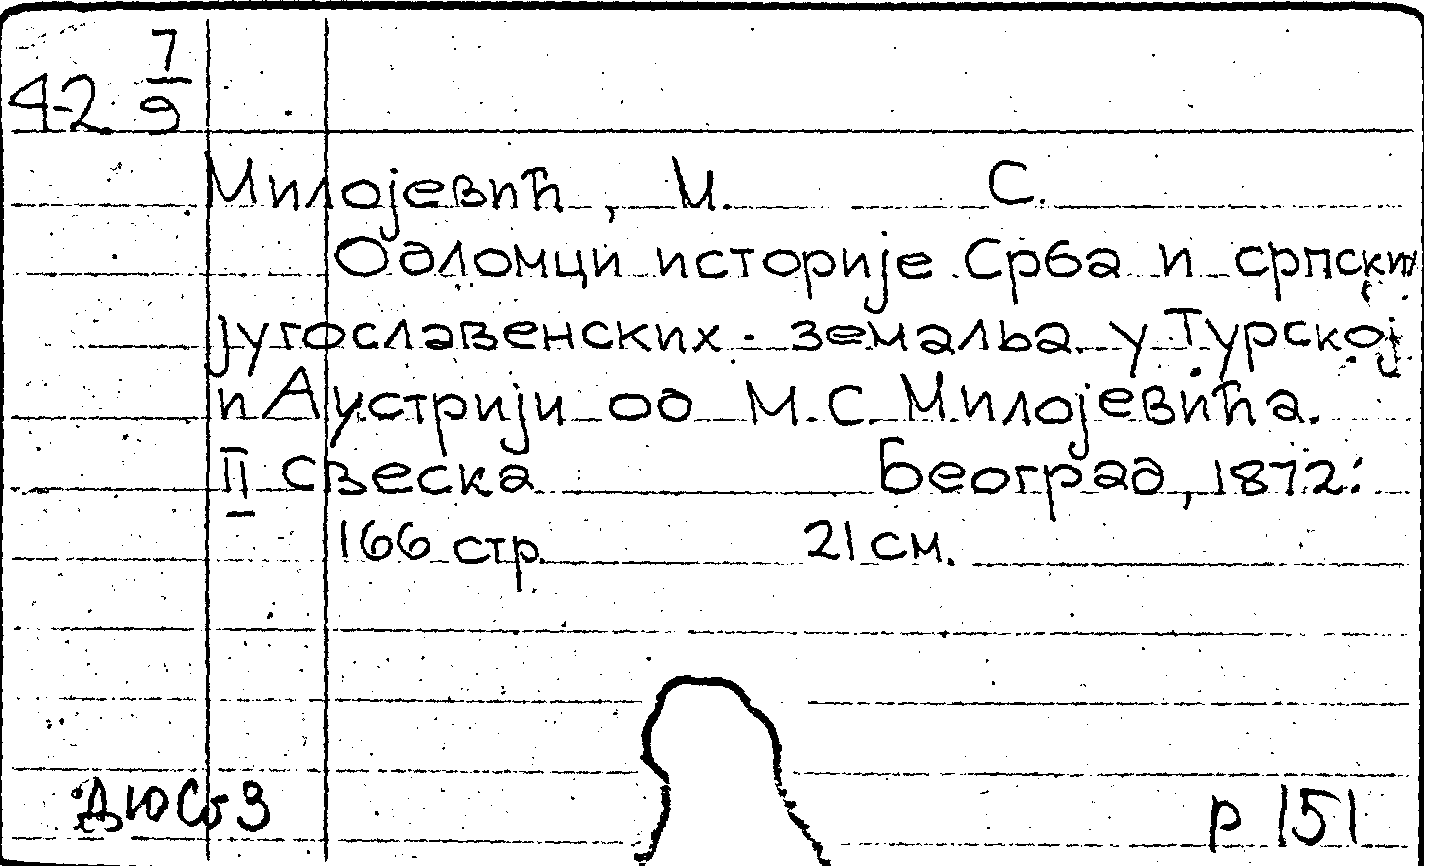 42 7/9
Милојевић, М. С.
Одломци историје Срба и српских
југославенских - земаља у Турској
и Аустрији од М. С. Милојевића.
II свеска Београд, 1872.
166 стр. 21 см.
р 151